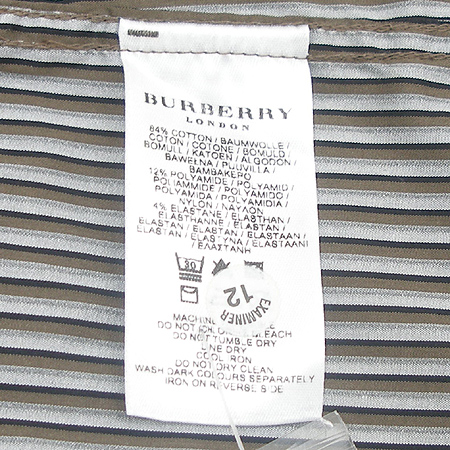 BURBERRY
LONDON
84% COTTON / BAUMWOLLE /
COTON / COTONE / BOMULD /
BOMULL / KATOEN / ALGODON /
BAWEŁNA / PUUVILLA /
ΒΑΜΒΑΚΕΡΟ
12% POLYAMIDE / POLYAMID /
POLIAMMIDE / POLYAMID /
POLYAMIDA / POLYAMIDIA /
NYLON / ΝΑΥΛΟΝ
4% ELASTANE / ELASTHAN /
ELASTHANNE / ELASTAN /
ELASTAN / ELASTAN / ELASTANO /
ELASTAN / ELASTYNA / ELASTAANI /
ΕΛΑΣΤΑΝΗ
30
12
EXAMINER
MACHINE
DO NOT BLEACH
DO NOT TUMBLE DRY
LINE DRY
COOL IRON
DO NOT DRY CLEAN
WASH DARK COLOURS SEPARATELY
IRON ON REVERSE SIDE